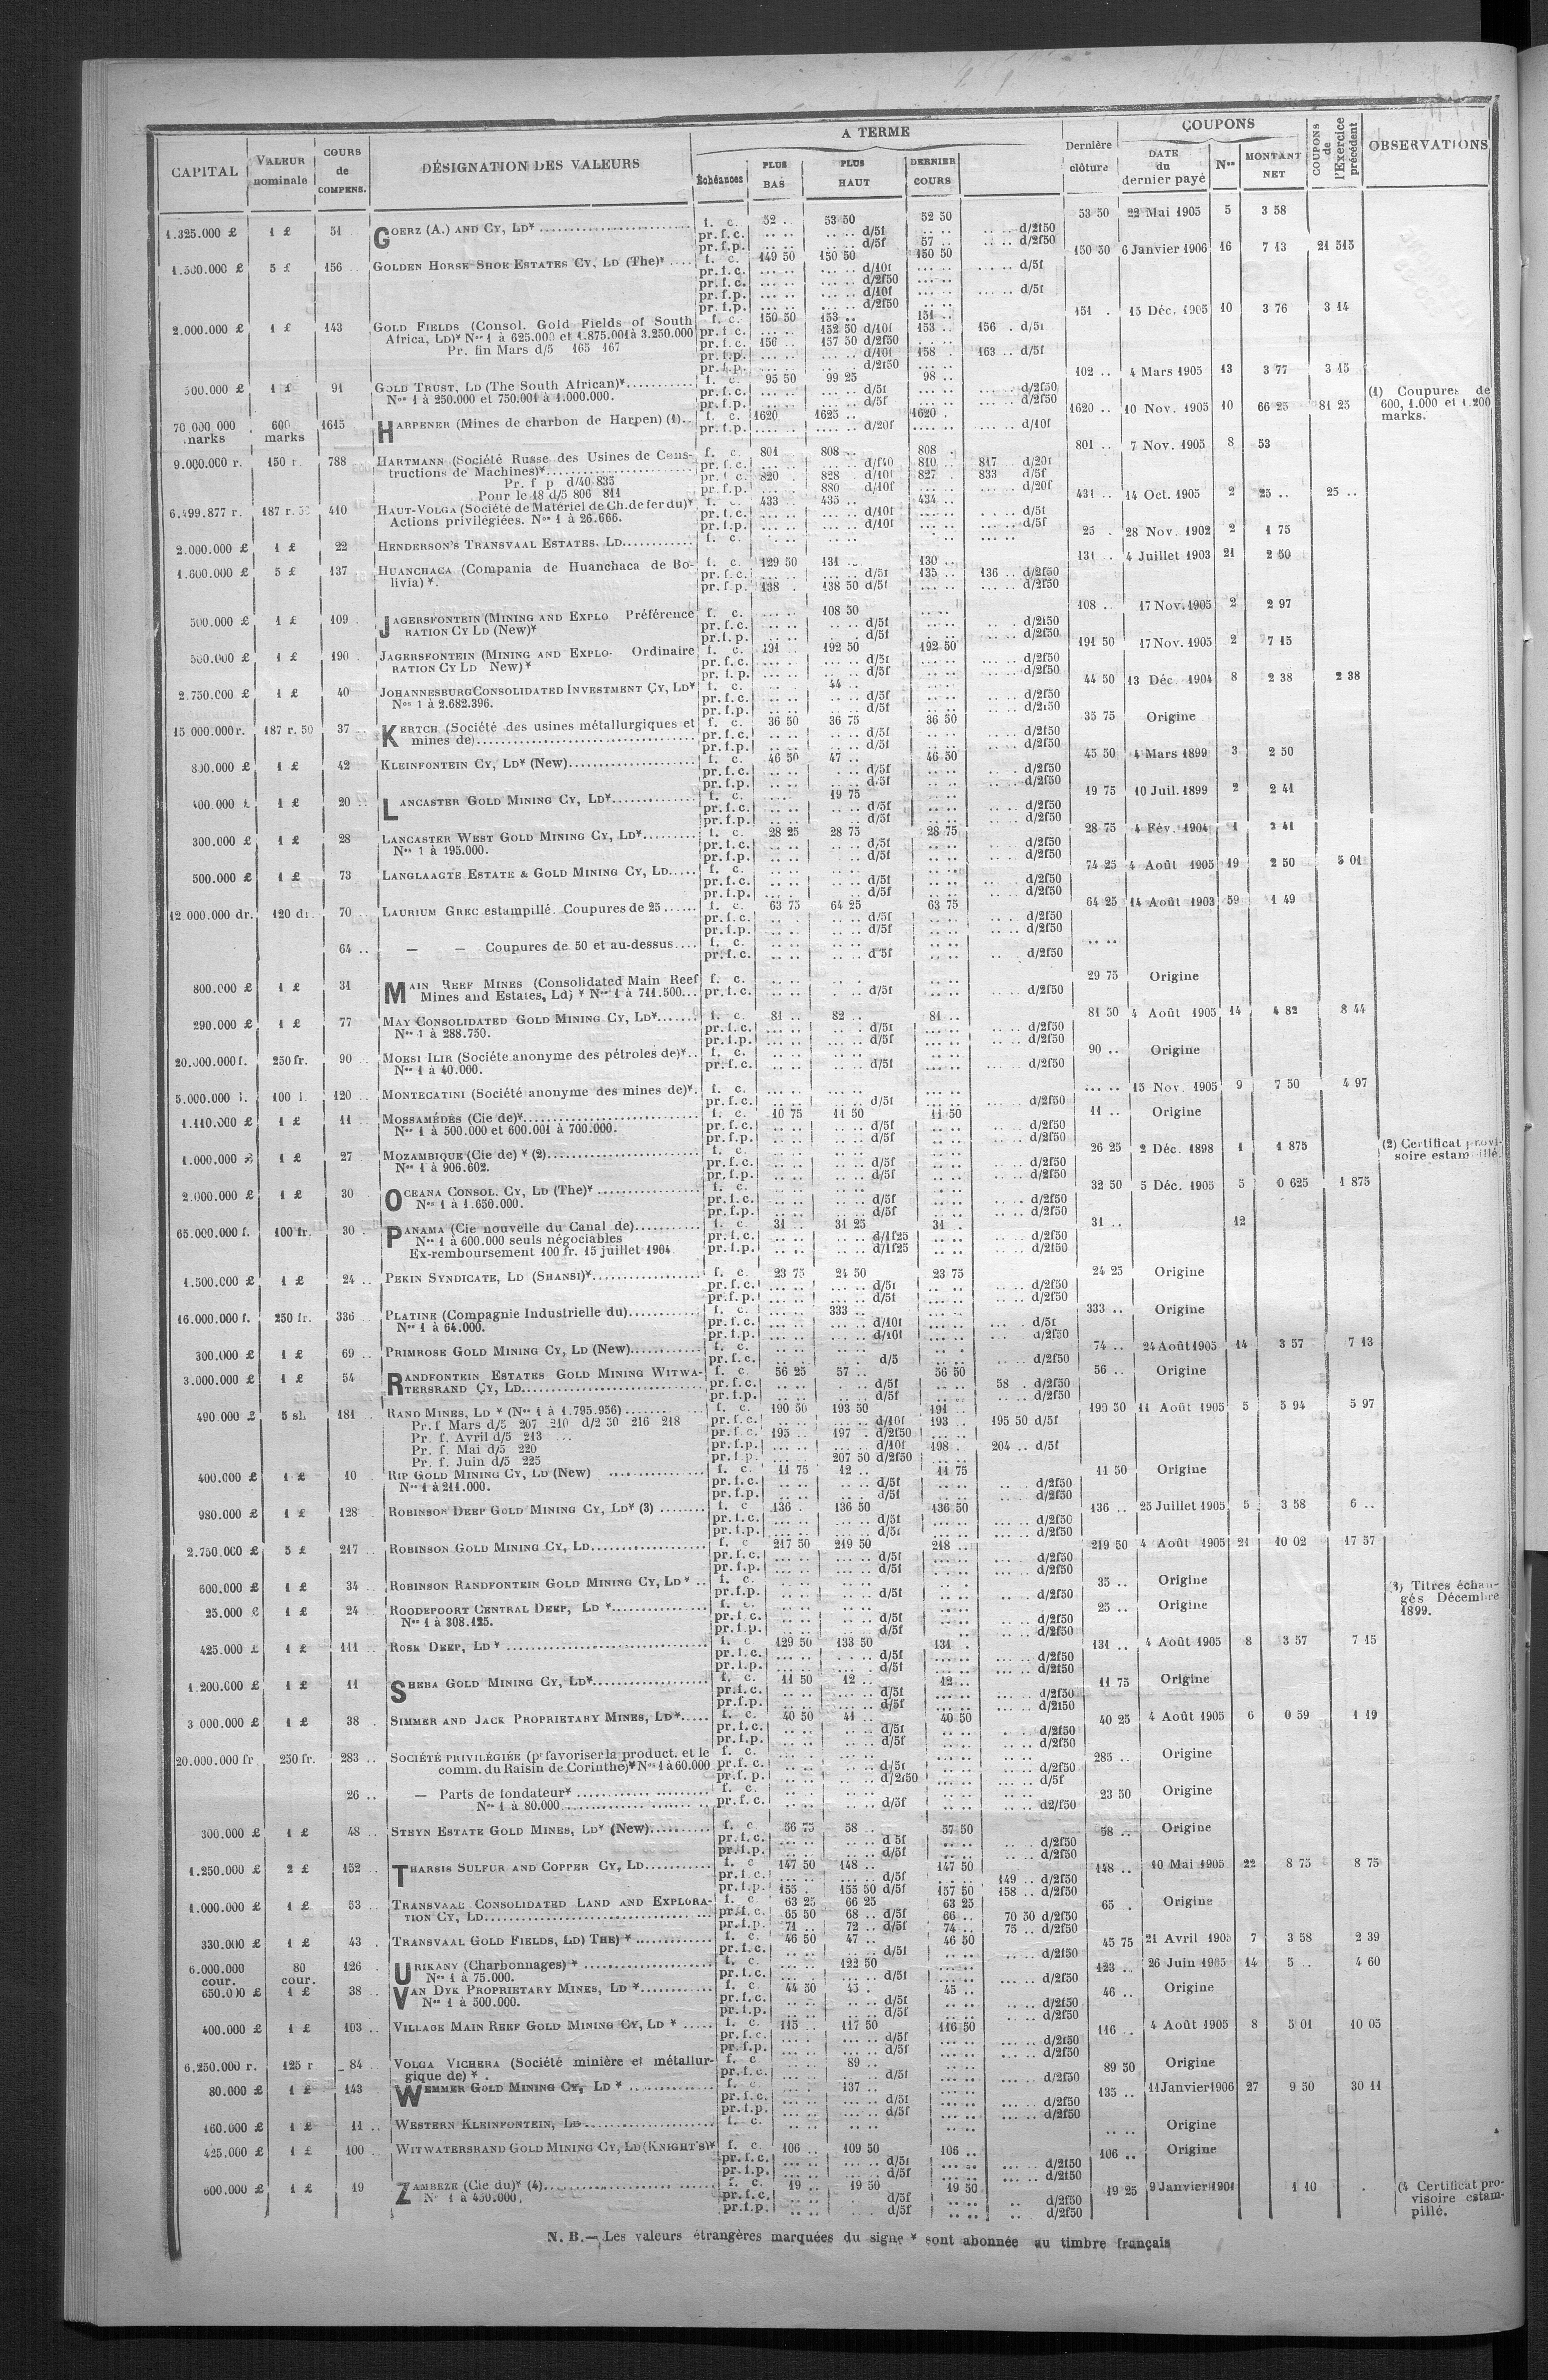 CAPITAL | VALEUR nominale | COURS de COMPENS. | DÉSIGNATION DES VALEURS | A TERME | Échéances | PLUS BAS | PLUS HAUT | DERNIER COURS | Dernière clôture | COUPONS | DATE du dernier payé | Nos | MONTANT NET | COUPONS de l'Exercice précédent | OBSERVATIONS
1.325.000 £ 1 £ 51 GOERZ (A.) AND CY, LD* f. c. 52 .. 53 50 52 50 53 50 22 Mai 1905 5 3 58
pr. f. c. d/5f d/2f50
pr. f. p. d/5f 57 .. d/2f50
1.500.000 £ 5 £ 156 GOLDEN HORSE SHOE ESTATES CY, LD (The)* f. c. 149 50 150 50 150 50 150 50 6 Janvier 1906 16 7 13 21 515
pr. f. c. d/10f d/5f
pr. f. c. d/2f50
pr. f. p. d/10f d/5f
pr. f. p. d/2f50
2.000.000 £ 1 £ 143 GOLD FIELDS (Consol. Gold Fields of South f. c. 150 50 153 .. 151 .. 151 . 15 Déc. 1905 10 3 76 3 14
Africa, LD)* Nos 1 à 625.000 et 1.875.001 à 3.250.000 pr. f. c. 152 50 d/10f 153 .. 156 . d/5f
Pr. fin Mars d/5 165 167 pr. f. c. 156 .. 157 50 d/2f50
pr. f. p. d/10f 158 . 163 .. d/5f
pr. f. p. d/2f50
500.000 £ 1 £ 91 GOLD TRUST, LD (The South African)* f. c. 95 50 99 25 98 .. 102 .. 4 Mars 1905 13 3 77 3 15
Nos 1 à 250.000 et 750.001 à 1.000.000. pr. f. c. d/5f d/2f50
pr. f. p. d/5f d/2f50
70.000.000 marks 600 marks 1615 HARPENER (Mines de charbon de Harpen) (1) f. c. 1620 1625 .. 1620 . 1620 .. 10 Nov. 1905 10 66 25 81 25 (1) Coupures de 600, 1.000 et 1.200 marks.
pr. f. p. d/20f d/10f
9.000.000 r. 150 r 788 HARTMANN (Société Russe des Usines de Cons- f. c. 801 808 .. 808 . 801 .. 7 Nov. 1905 8 53
tructions de Machines)* pr. f. c. d/f40 810 .. 817 . d/20f
Pr. f p d/40 835 pr. f. c. 820 . 828 d/10f 827 . 833 d/5f
Pour le 18 d/5 806 811 pr. f. p. 880 d/10f d/20f
6.499.877 r. 187 r. 410 HAUT-VOLGA (Société de Matériel de Ch. de fer du)* f. c. 433 .. 435 .. 434 .. 431 .. 14 Oct. 1905 2 25 .. 25 ..
Actions privilégiées. Nos 1 à 26.666. pr. f. c. d/10f d/5f
pr. f. p. d/10f d/5f
2.000.000 £ 1 £ 22 HENDERSON'S TRANSVAAL ESTATES. LD f. c. 25 . 28 Nov. 1902 2 1 75
1.600.000 £ 5 £ 137 HUANCHACA (Compania de Huanchaca de Bo- f. c. 129 50 131 .. 130 .. 131 . 4 Juillet 1903 21 2 50
livia) *. pr. f. c. d/5f 135 .. 136 .. d/2f50
pr. f. p. 138 . 138 50 d/5f d/2f50
500.000 £ 1 £ 109 JAGERSFONTEIN (MINING AND EXPLO Préférence f. c. 108 50 108 .. 17 Nov. 1905 2 2 97
RATION CY LD (New)* pr. f. c. d/5f d/2f50
pr. f. p. d/5f d/2f50
500.000 £ 1 £ 190 JAGERSFONTEIN (MINING AND EXPLO- Ordinaire f. c. 191 .. 192 50 192 50 191 50 17 Nov. 1905 2 7 15
RATION CY LD New)* pr. f. c. d/5f d/2f50
pr. f. p. d/5f d/2f50
2.750.000 £ 1 £ 40 JOHANNESBURG CONSOLIDATED INVESTMENT CY, LD* f. c. 44 .. 44 50 13 Déc. 1904 8 2 38 2 38
Nos 1 à 2.682.396. pr. f. c. d/5f d/2f50
pr. f. p. d/5f d/2f50
15.000.000 r. 187 r. 50 37 KERTCH (Société des usines métallurgiques et f. c. 36 50 36 75 36 50 35 75 Origine
mines de) pr. f. c. d/5f d/2f50
pr. f. p. d/5f d/2f50
800.000 £ 1 £ 42 KLEINFONTEIN CY, LD* (New) f. c. 46 50 47 .. 46 50 45 50 4 Mars 1899 3 2 50
pr. f. c. d/5f d/2f50
pr. f. p. d/5f d/2f50
400.000 £ 1 £ 20 LANCASTER GOLD MINING CY, LD* f. c. 19 75 19 75 10 Juil. 1899 2 2 41
pr. f. c. d/5f d/2f50
pr. f. p. d/5f d/2f50
300.000 £ 1 £ 28 LANCASTER WEST GOLD MINING CY, LD* f. c. 28 25 28 75 28 75 28 75 4 Fév. 1904 1 2 41
Nos 1 à 195.000. pr. f. c. d/5f d/2f50
pr. f. p. d/5f d/2f50
500.000 £ 1 £ 73 LANGLAAGTE ESTATE & GOLD MINING CY, LD f. c. 74 25 4 Août 1905 19 2 50 5 01
pr. f. c. d/5f d/2f50
pr. f. p. d/5f d/2f50
12 000.000 dr. 120 dr. 70 LAURIUM GREC estampillé. Coupures de 25 f. c. 63 75 64 25 63 75 64 25 14 Août 1903 59 1 49
pr. f. c. d/5f d/2f50
pr. f. p. d/5f d/2f50
64 .. — — Coupures de 50 et au-dessus f. c.
pr. f. c. d 5f d/2f50
800.000 £ 1 £ 31 MAIN REEF MINES (Consolidated Main Reef f. c. 29 75 Origine
Mines and Estates, Ld) * Nos 1 à 711.500 pr. f. c. d/5f d/2f50
290.000 £ 1 £ 77 MAY CONSOLIDATED GOLD MINING CY, LD* f. c. 81 .. 82 .. 81 .. 81 50 4 Août 1905 14 4 82 8 44
Nos 1 à 288.750. pr. f. c. d/5f d/2f50
pr. f. p. d/5f d/2f50
20.000.000 f. 250 fr. 90 MOESI ILIR (Société anonyme des pétroles de)* f. c. 90 .. Origine
Nos 1 à 40.000. pr. f. c. d/5f d/2f50
5.000.000 l. 100 l. 120 MONTECATINI (Société anonyme des mines de)* f. c. 15 Nov. 1905 9 7 50 4 97
pr. f. c. d/5f d/2f50
1.110.000 £ 1 £ 11 MOSSAMÉDÈS (Cie de)* f. c. 10 75 11 50 11 50 11 .. Origine
Nos 1 à 500.000 et 600.001 à 700.000. pr. f. c. d/5f d/2f50
pr. f. p. d/5f d/2f50
1.000.000 £ 1 £ 27 MOZAMBIQUE (Cie de) * (2) f. c. 26 25 2 Déc. 1898 1 1 875 (2) Certificat provisoire estampillé.
Nos 1 à 906.602. pr. f. c. d/5f d/2f50
pr. f. p. d/5f d/2f50
2.000.000 £ 1 £ 30 OCEANA CONSOL. CY, LD (The)* f. c. 32 50 5 Déc. 1905 5 0 625 1 875
Nos 1 à 1.650.000. pr. f. c. d/5f d/2f50
pr. f. p. d/5f d/2f50
65.000.000 f. 100 fr. 30 PANAMA (Cie nouvelle du Canal de) f. c. 31 .. 31 25 31 .. 31 .. 12
Nos 1 à 600.000 seuls négociables pr. f. c. d/1f25 d/2f50
Ex-remboursement 100 fr. 15 juillet 1904 pr. f. p. d/1f25 d/2f50
1.500.000 £ 1 £ 24 PEKIN SYNDICATE, LD (SHANSI)* f. c. 23 75 24 50 23 75 24 25 Origine
pr. f. c. d/5f d/2f50
pr. f. p. d/5f d/2f50
16.000.000 f. 250 fr. 336 PLATINE (Compagnie Industrielle du) f. c. 333 .. 333 .. Origine
Nos 1 à 64.000. pr. f. c. d/10f d/5f
pr. f. p. d/10f d/2f50
300.000 £ 1 £ 69 PRIMROSE GOLD MINING CY, LD (New) f. c. 74 .. 24 Août 1905 14 3 57 7 13
pr. f. c. d/5 d/2f50
3.000.000 £ 1 £ 54 RANDFONTEIN ESTATES GOLD MINING WITWA- f. c. 56 25 57 .. 56 50 56 .. Origine
TERSRAND CY, LD pr. f. c. d/5f 58 d/2f50
pr. f. p. d/5f d/2f50
490.000 £ 5 sh. 181 RAND MINES, LD * (Nos 1 à 1.795.956) f. c. 190 50 193 50 191 .. 190 50 11 Août 1905 5 5 94 5 97
Pr. f Mars d/5 207 210 d/2 50 216 218 pr. f. c. d/10f 193 .. 195 50 d/5f
Pr. f. Avril d/5 213 ... pr. f. c. 195 .. 197 . d/2f50
Pr. f. Mai d/5 220 pr. f. p. d/10f 198 . 204 .. d/5f
Pr. f. Juin d/5 225 pr. f. p. 207 50 d/2f50
400.000 £ 1 £ 10 RIP GOLD MINING CY, LD (New) f. c. 11 75 12 .. 11 75 11 50 Origine
Nos 1 à 211.000. pr. f. c. d/5f d/2f50
pr. f. p. d/5f d/2f50
980.000 £ 1 £ 128 ROBINSON DEEP GOLD MINING CY, LD* (3) f. c 136 . 136 50 136 50 136 .. 25 Juillet 1905 5 3 58 6 ..
pr. f. c. d/5f d/2f50
pr. f. p. d/5f d/2f50
2.750.000 £ 5 £ 217 ROBINSON GOLD MINING CY, LD f. c 217 50 219 50 218 .. 219 50 4 Août 1905 21 10 02 17 57
pr. f. c. d/5f d/2f50
pr. f. p. d/5f d/2f50
600.000 £ 1 £ 34 ROBINSON RANDFONTEIN GOLD MINING CY, LD * f. c. 35 .. Origine (3) Titres échangés Décembre 1899.
pr. f. p. d/5f d/2f50
25.000 £ 1 £ 24 ROODEPOORT CENTRAL DEEP, LD * f. c. 25 .. Origine
Nos 1 à 308.125. pr. f. c. d/5f d/2f50
pr. f. p. d/5f d/2f50
425.000 £ 1 £ 111 ROSE DEEP, LD * f. c 129 50 133 50 131 . 131 .. 4 Août 1905 8 3 57 7 15
pr. f. c. d/5f d/2f50
pr. f. p. d/5f d/2f50
1.200.000 £ 1 £ 11 SHEBA GOLD MINING CY, LD* f. c. 11 50 12 .. 12 .. 11 75 Origine
pr. f. c. d/5f d/2f50
pr. f. p. d/5f d/2f50
3.000.000 £ 1 £ 38 SIMMER AND JACK PROPRIETARY MINES, LD* f. c. 40 50 41 .. 40 50 40 25 4 Août 1905 6 0 59 1 19
pr. f. c. d/5f d/2f50
pr. f. p. d/5f d/2f50
20.000.000 fr. 250 fr. 283 SOCIÉTÉ PRIVILÉGIÉE (pr favoriser la product. et le f. c. 285 .. Origine
comm. du Raisin de Corinthe)* Nos 1 à 60.000 pr. f. c. d/5f d/2f50
pr. f. p. d/2f50 d/5f
26 .. — Parts de fondateur* f. c. 23 50 Origine
Nos 1 à 80.000 pr. f. c. d/5f d2/f50
300.000 £ 1 £ 48 STEYN ESTATE GOLD MINES, LD* (New) f. c 56 75 58 .. 57 50 58 .. Origine
pr. f. c. d 5f d/2f50
pr. f. p. d/5f d/2f50
1.250.000 £ 2 £ 152 THARSIS SULFUR AND COPPER CY, LD f. c 147 50 148 .. 147 50 148 .. 10 Mai 1905 22 8 75 8 75
pr. f. c. d/5f 149 .. d/2f50
pr. f. p. 155 . 155 50 d/5f 157 50 158 .. d/2f50
1.000.000 £ 1 £ 53 TRANSVAAL CONSOLIDATED LAND AND EXPLORA- f. c. 63 25 66 25 63 25 65 . Origine
TION CY, LD pr. f. c. 65 50 68 .. d/5f 66 .. 70 50 d/2f50
pr. f. p. 71 .. 72 .. d/5f 74 .. 75 .. d/2f50
330.000 £ 1 £ 43 TRANSVAAL GOLD FIELDS, LD) THE) * f. c 46 50 47 .. 46 50 45 75 21 Avril 1905 7 3 58 2 39
pr. f. c. d/5f d/2f50
6.000.000 cour. 80 cour. 126 URIKANY (Charbonnages) * f. c. 122 50 123 .. 26 Juin 1905 14 5 .. 4 60
Nos 1 à 75.000. pr. f. c. d/5f d/2f50
650.000 £ 1 £ 38 VAN DYK PROPRIETARY MINES, LD * f. c. 44 50 45 . 45 .. 46 .. Origine
Nos 1 à 500.000. pr. f. c. d/5f d/2f50
pr. f. p. d/5f d/2f50
400.000 £ 1 £ 103 VILLAGE MAIN REEF GOLD MINING CY, LD * f. c. 115 .. 117 50 116 50 116 .. 4 Août 1905 8 5 01 10 05
pr. f. c. d/5f d/2f50
pr. f. p. d/5f d/2f50
6.250.000 r. 125 r 84 VOLGA VICHERA (Société minière et métallur- f. c. 89 .. 89 50 Origine
gique de) * . pr. f. c. d/5f d/2f50
80.000 £ 1 £ 143 WEMMER GOLD MINING CY, LD * f. c. 137 .. 135 .. 11 Janvier 1906 27 9 50 30 11
pr. f. c. d/5f d/2f50
pr. f. p. d/5f d/2f50
160.000 £ 1 £ 11 WESTERN KLEINFONTEIN, LD f. c. Origine
425.000 £ 1 £ 100 WITWATERSRAND GOLD MINING CY, LD (KNIGHT'S)* f. c. 106 .. 109 50 106 .. 106 .. Origine
pr. f. c. d/5f d/2f50
pr. f. p. d/5f d/2f50
600.000 £ 1 £ 19 ZAMBÈZE (Cie du)* (4) f. c. 19 .. 19 50 19 50 19 25 9 Janvier 1901 1 10 (4 Certificat provisoire estampillé.
Nos 1 à 450.000, pr. f. c. d/5f d/2f50
pr. f. p. d/5f d/2f50
N. B.— Les valeurs étrangères marquées du signe * sont abonnée au timbre français